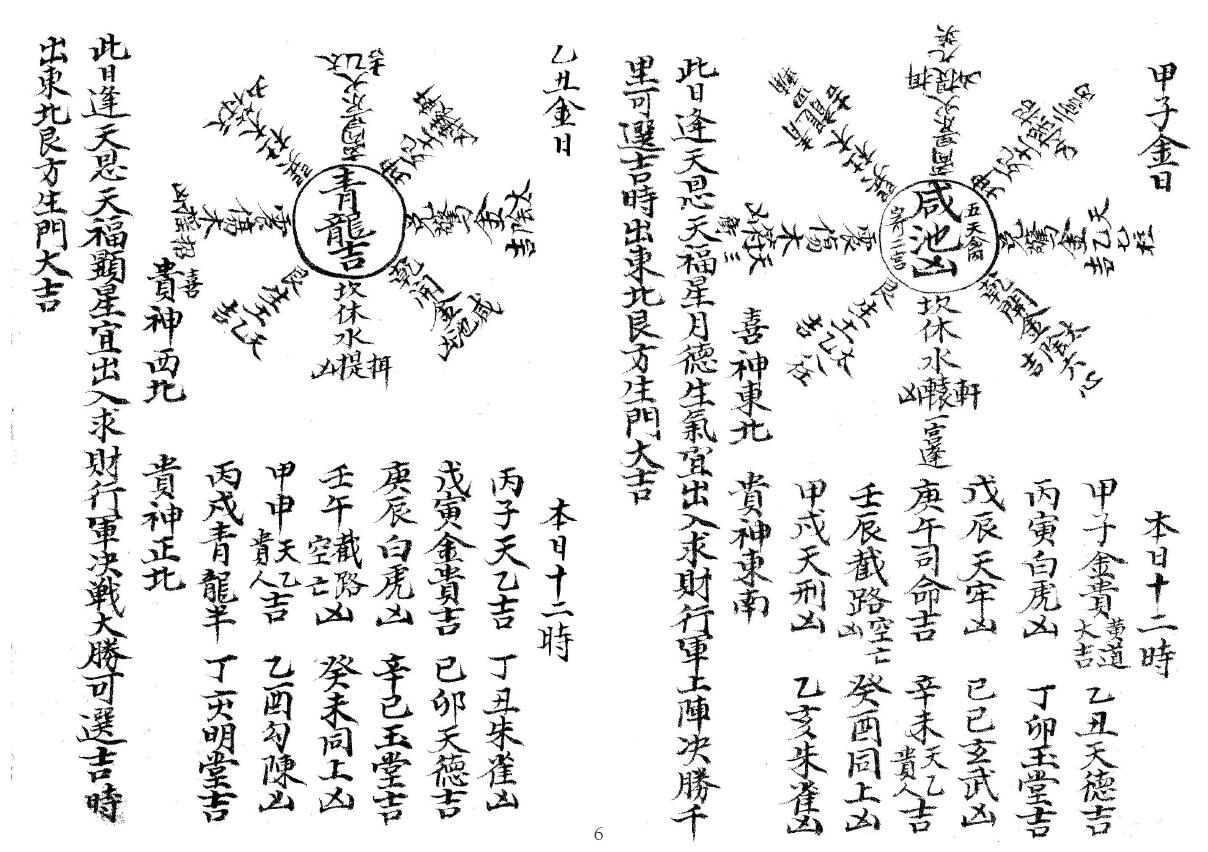 甲子金日
咸池凶
五天禽
寄二宮
坎休水軒轅凶
一宮逢
艮生土
震傷木
兌驚金
乾開金
本日十二時
甲子金貴黃道大吉 乙丑天德吉
丙寅白虎凶 丁卯玉堂吉
戊辰天牢凶 己巳玄武凶
庚午司命吉 辛未天乙貴人吉
壬辰截路空亡凶 癸酉同上凶
甲戌天刑凶 乙亥朱雀凶
喜神東北 貴神東南
此日逢天恩天福星月德生氣宜出入求財行軍上陣決勝千
里可選吉時出東北艮方生門大吉
乙丑金日
青龍吉
坎休水
招提凶
艮生土天乙吉
震傷木
兌驚金太陰吉
乾開金咸池凶
本日十二時
丙子天乙吉 丁丑朱雀凶
戊寅金貴吉 己卯天德吉
庚辰白虎凶 辛巳玉堂吉
壬午截路空亡凶 癸未同上凶
甲申天乙貴人吉 乙酉勾陳凶
丙戌青龍半 丁亥明堂吉
喜貴神西北 貴神正北
此日逢天恩天福顯星宜出入求財行軍決戰大勝可選吉時
出東北艮方生門大吉
6